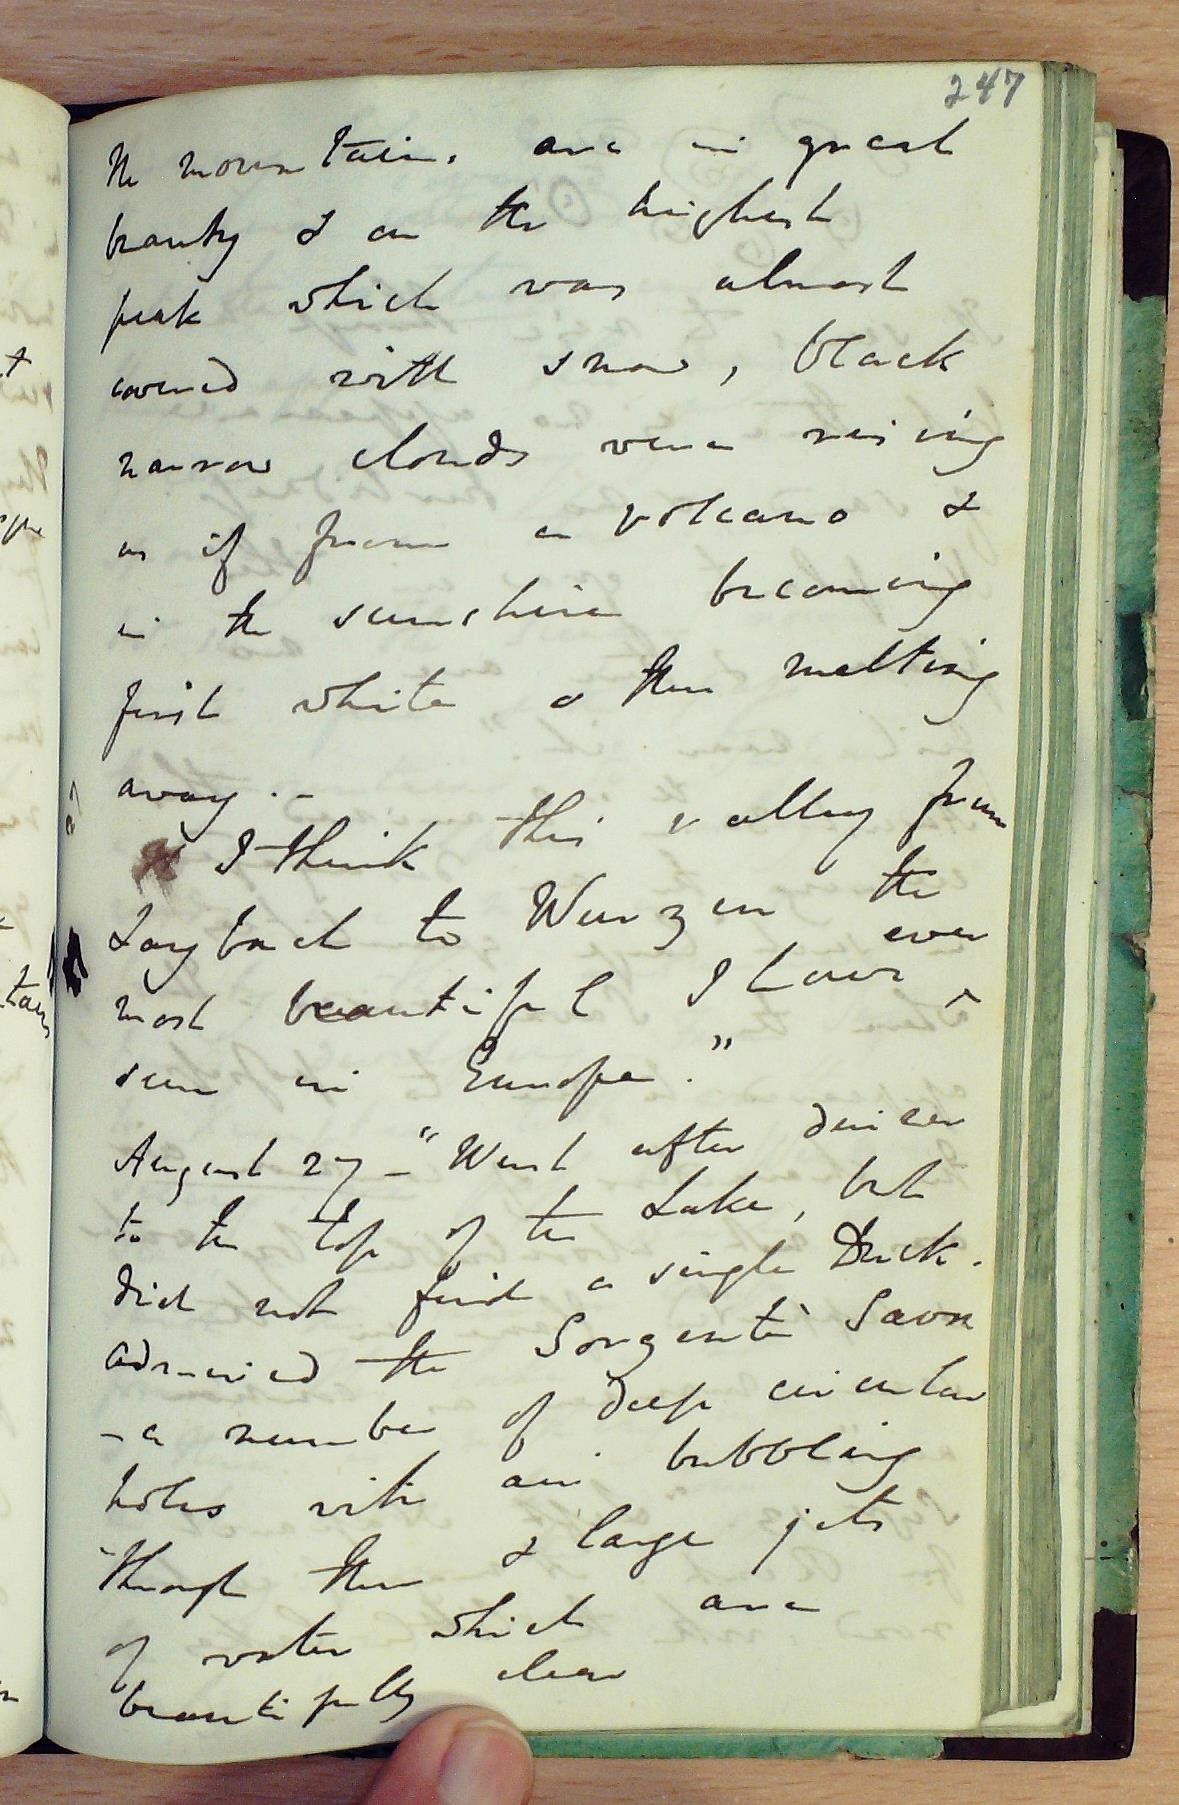 247
the mountains are in great
beauty & on the highest
peak which was almost
covered with snow, black
narrow clouds were rising
as if from a volcano &
in the sunshine becoming
first white & then melting
away. –
I think this valley from
Laybach to Wurzen the
most beautiful I have ever
seen in Europe."
August 27 – "Went after dinner
to the top of the Lake, but
did not find a single Duck.
admired the Sorgenti Sava
– a number of deep circular
holes with air bubbling
through them & large jets
of water which are
beautifully clear